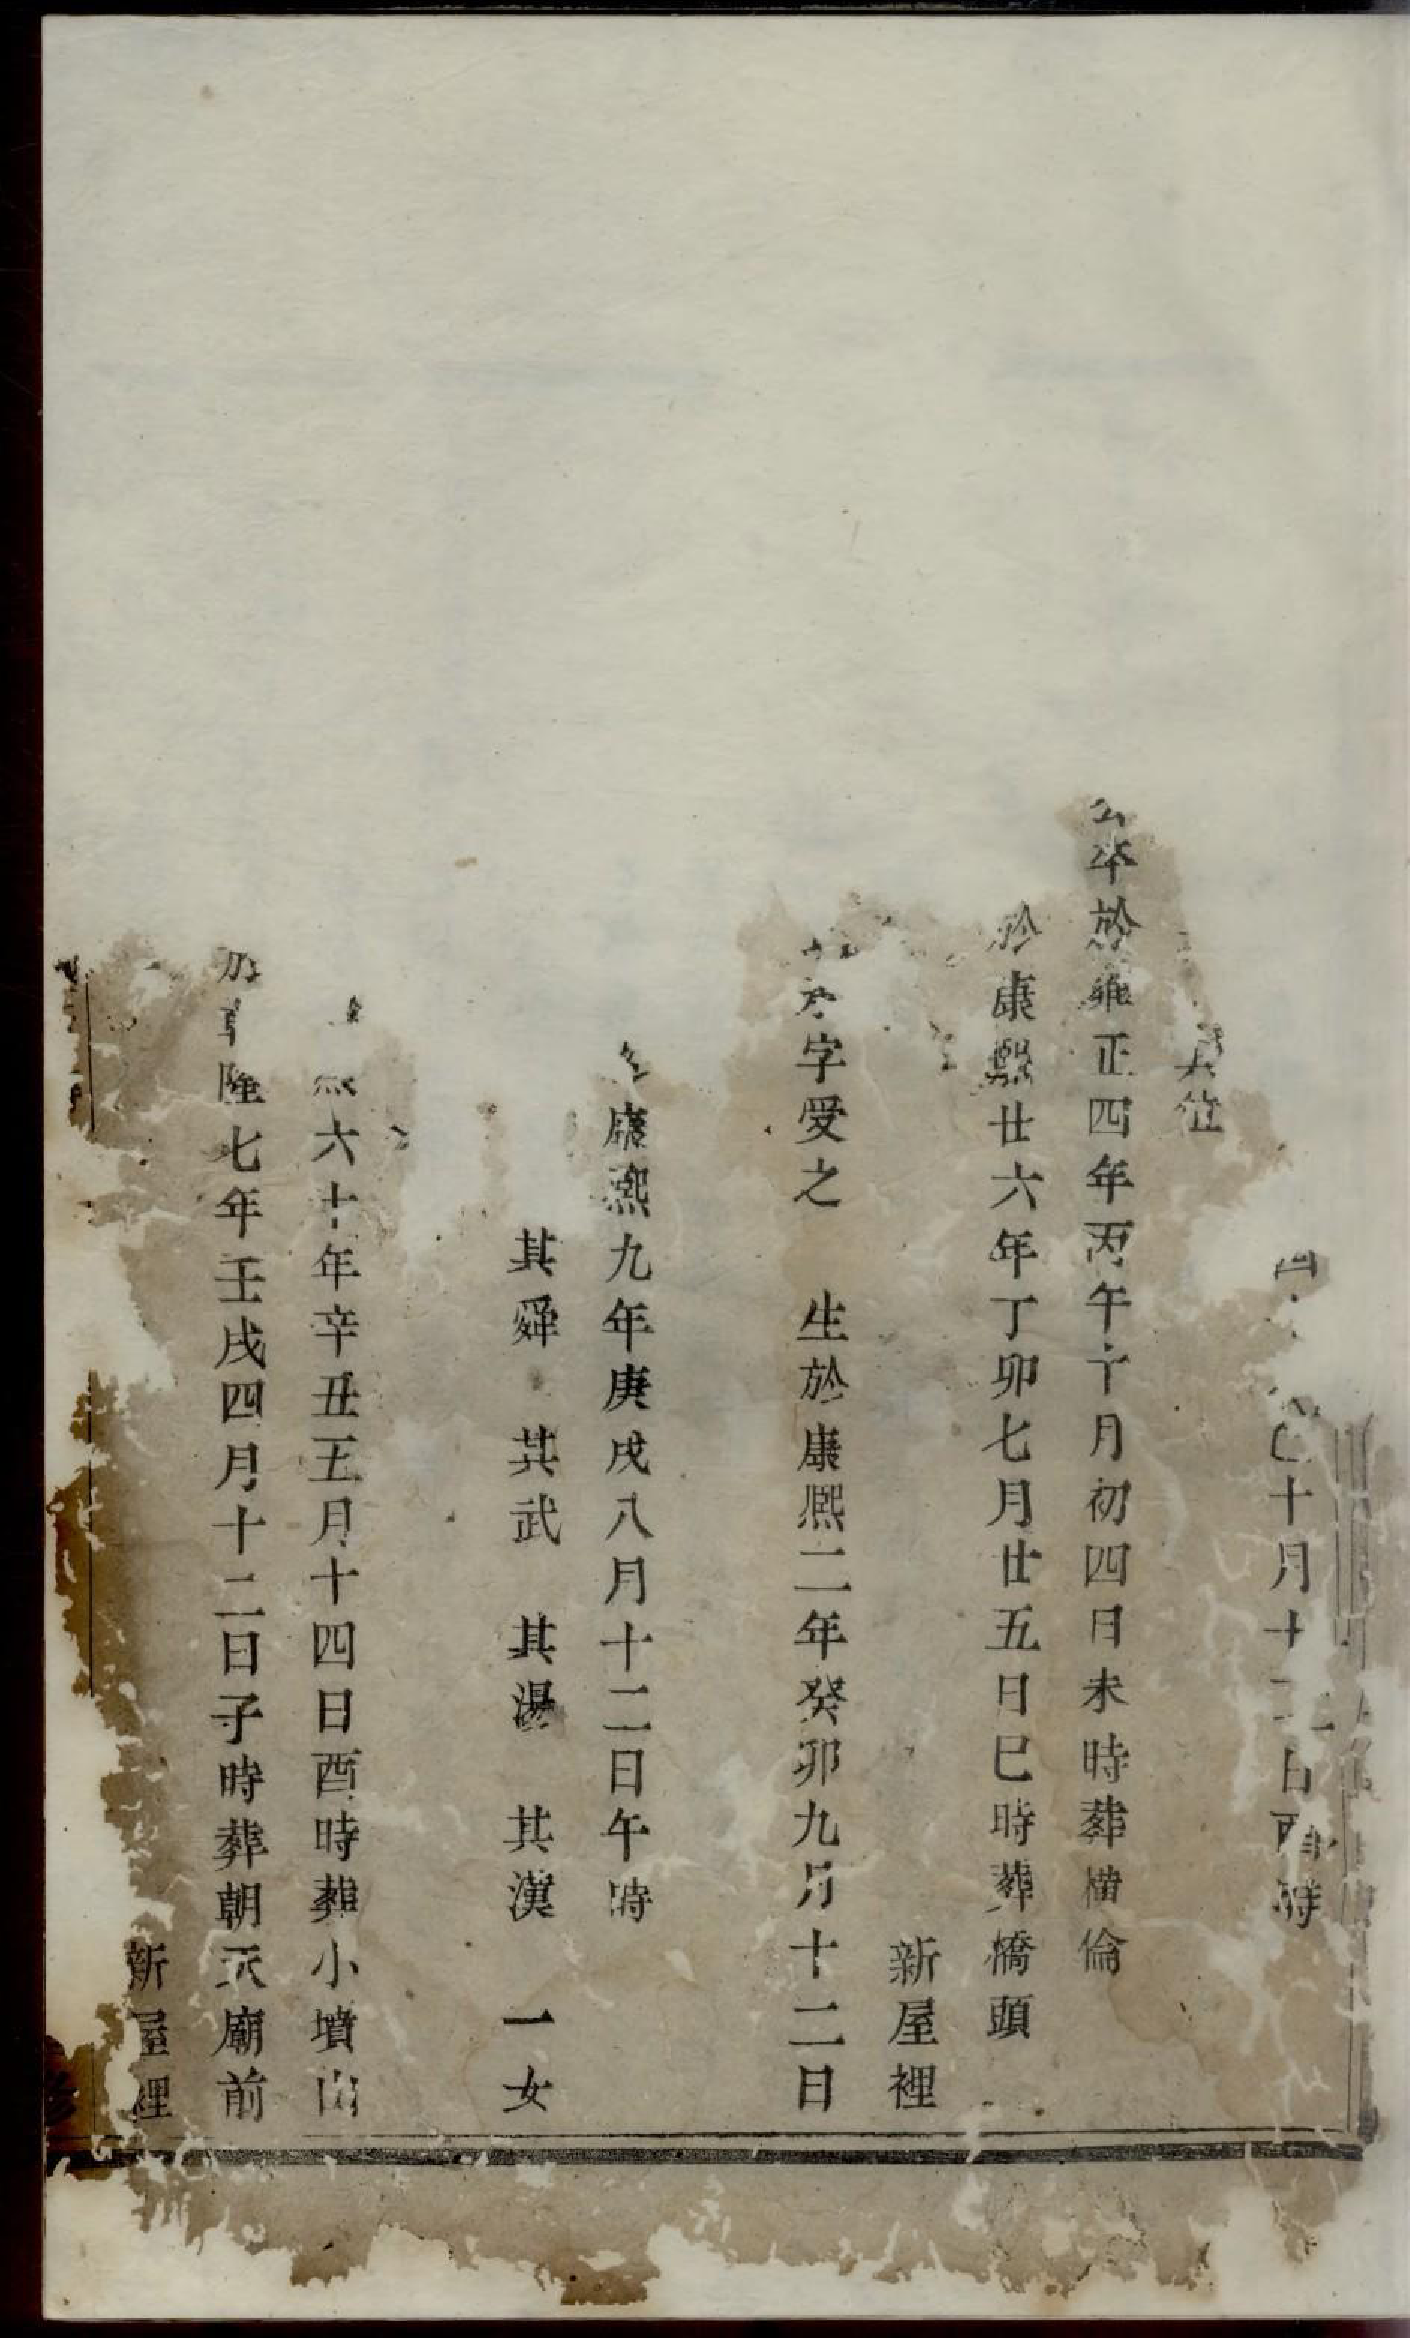 十月十二日酉時
公卒於雍正四年丙午十月初四日未時葬橫倫
於康熙廿六年丁卯七月廿五日巳時葬橋頭
新屋裡
字受之 生於康熙二年癸卯九月十二日
康熙九年庚戌八月十二日午時
其舜 其武 其湯 其漢 一女
熙六十年辛丑五月十四日酉時葬小墳山
於乾隆七年壬戌四月十二日子時葬朝天廟前
新屋裡